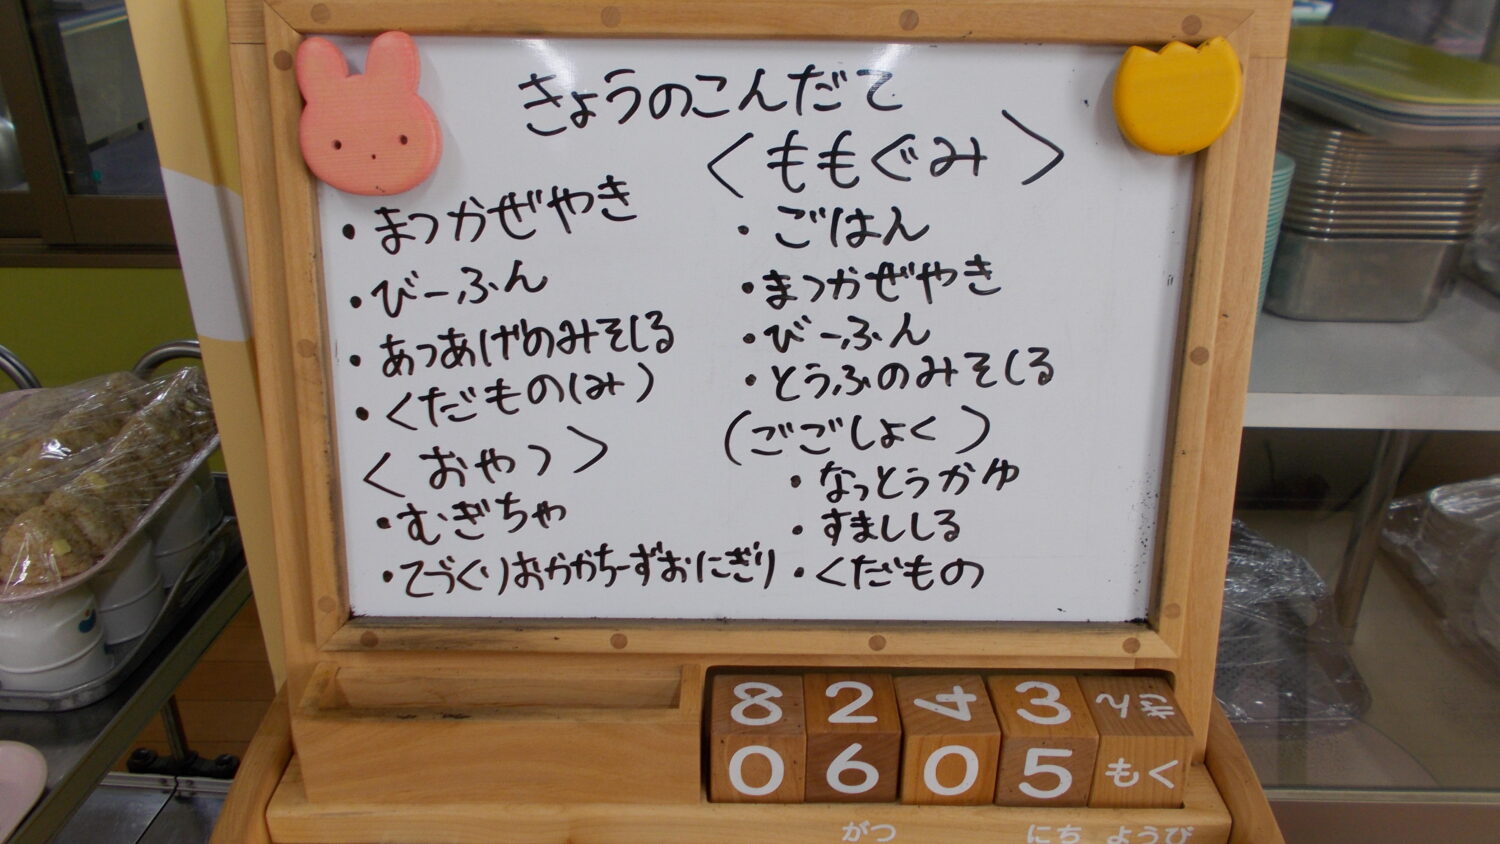 きょうのこんだて
・まつかぜやき
・びーふん
・あつあげのみそしる
・くだもの(み)
<おやつ>
・むぎちゃ
・てづくりおかかちーずおにぎり
<ももぐみ>
・ごはん
・まつかぜやき
・びーふん
・とうふのみそしる
(ごごしょく)
・なっとうかゆ
・すまししる
・くだもの
8 2 4 3 きん
0 6 0 5 もく
がつ にち ようび